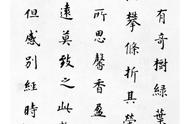 有奇樹綠葉
攀條折其榮
所思馨香盈
遠莫致之此
但感別經時